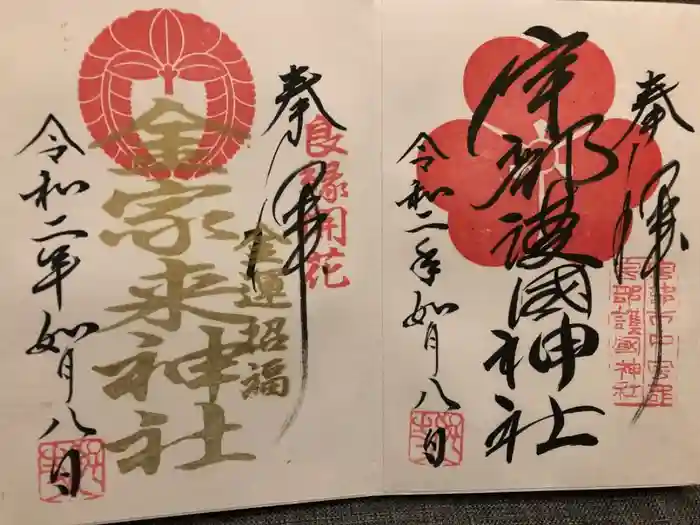 奉拝
宇部護國神社
令和二年如月八日
宇部市中宇部
宇部護國神社
奉拝
良縁開花
金運招福
金家来神社
令和二年如月八日